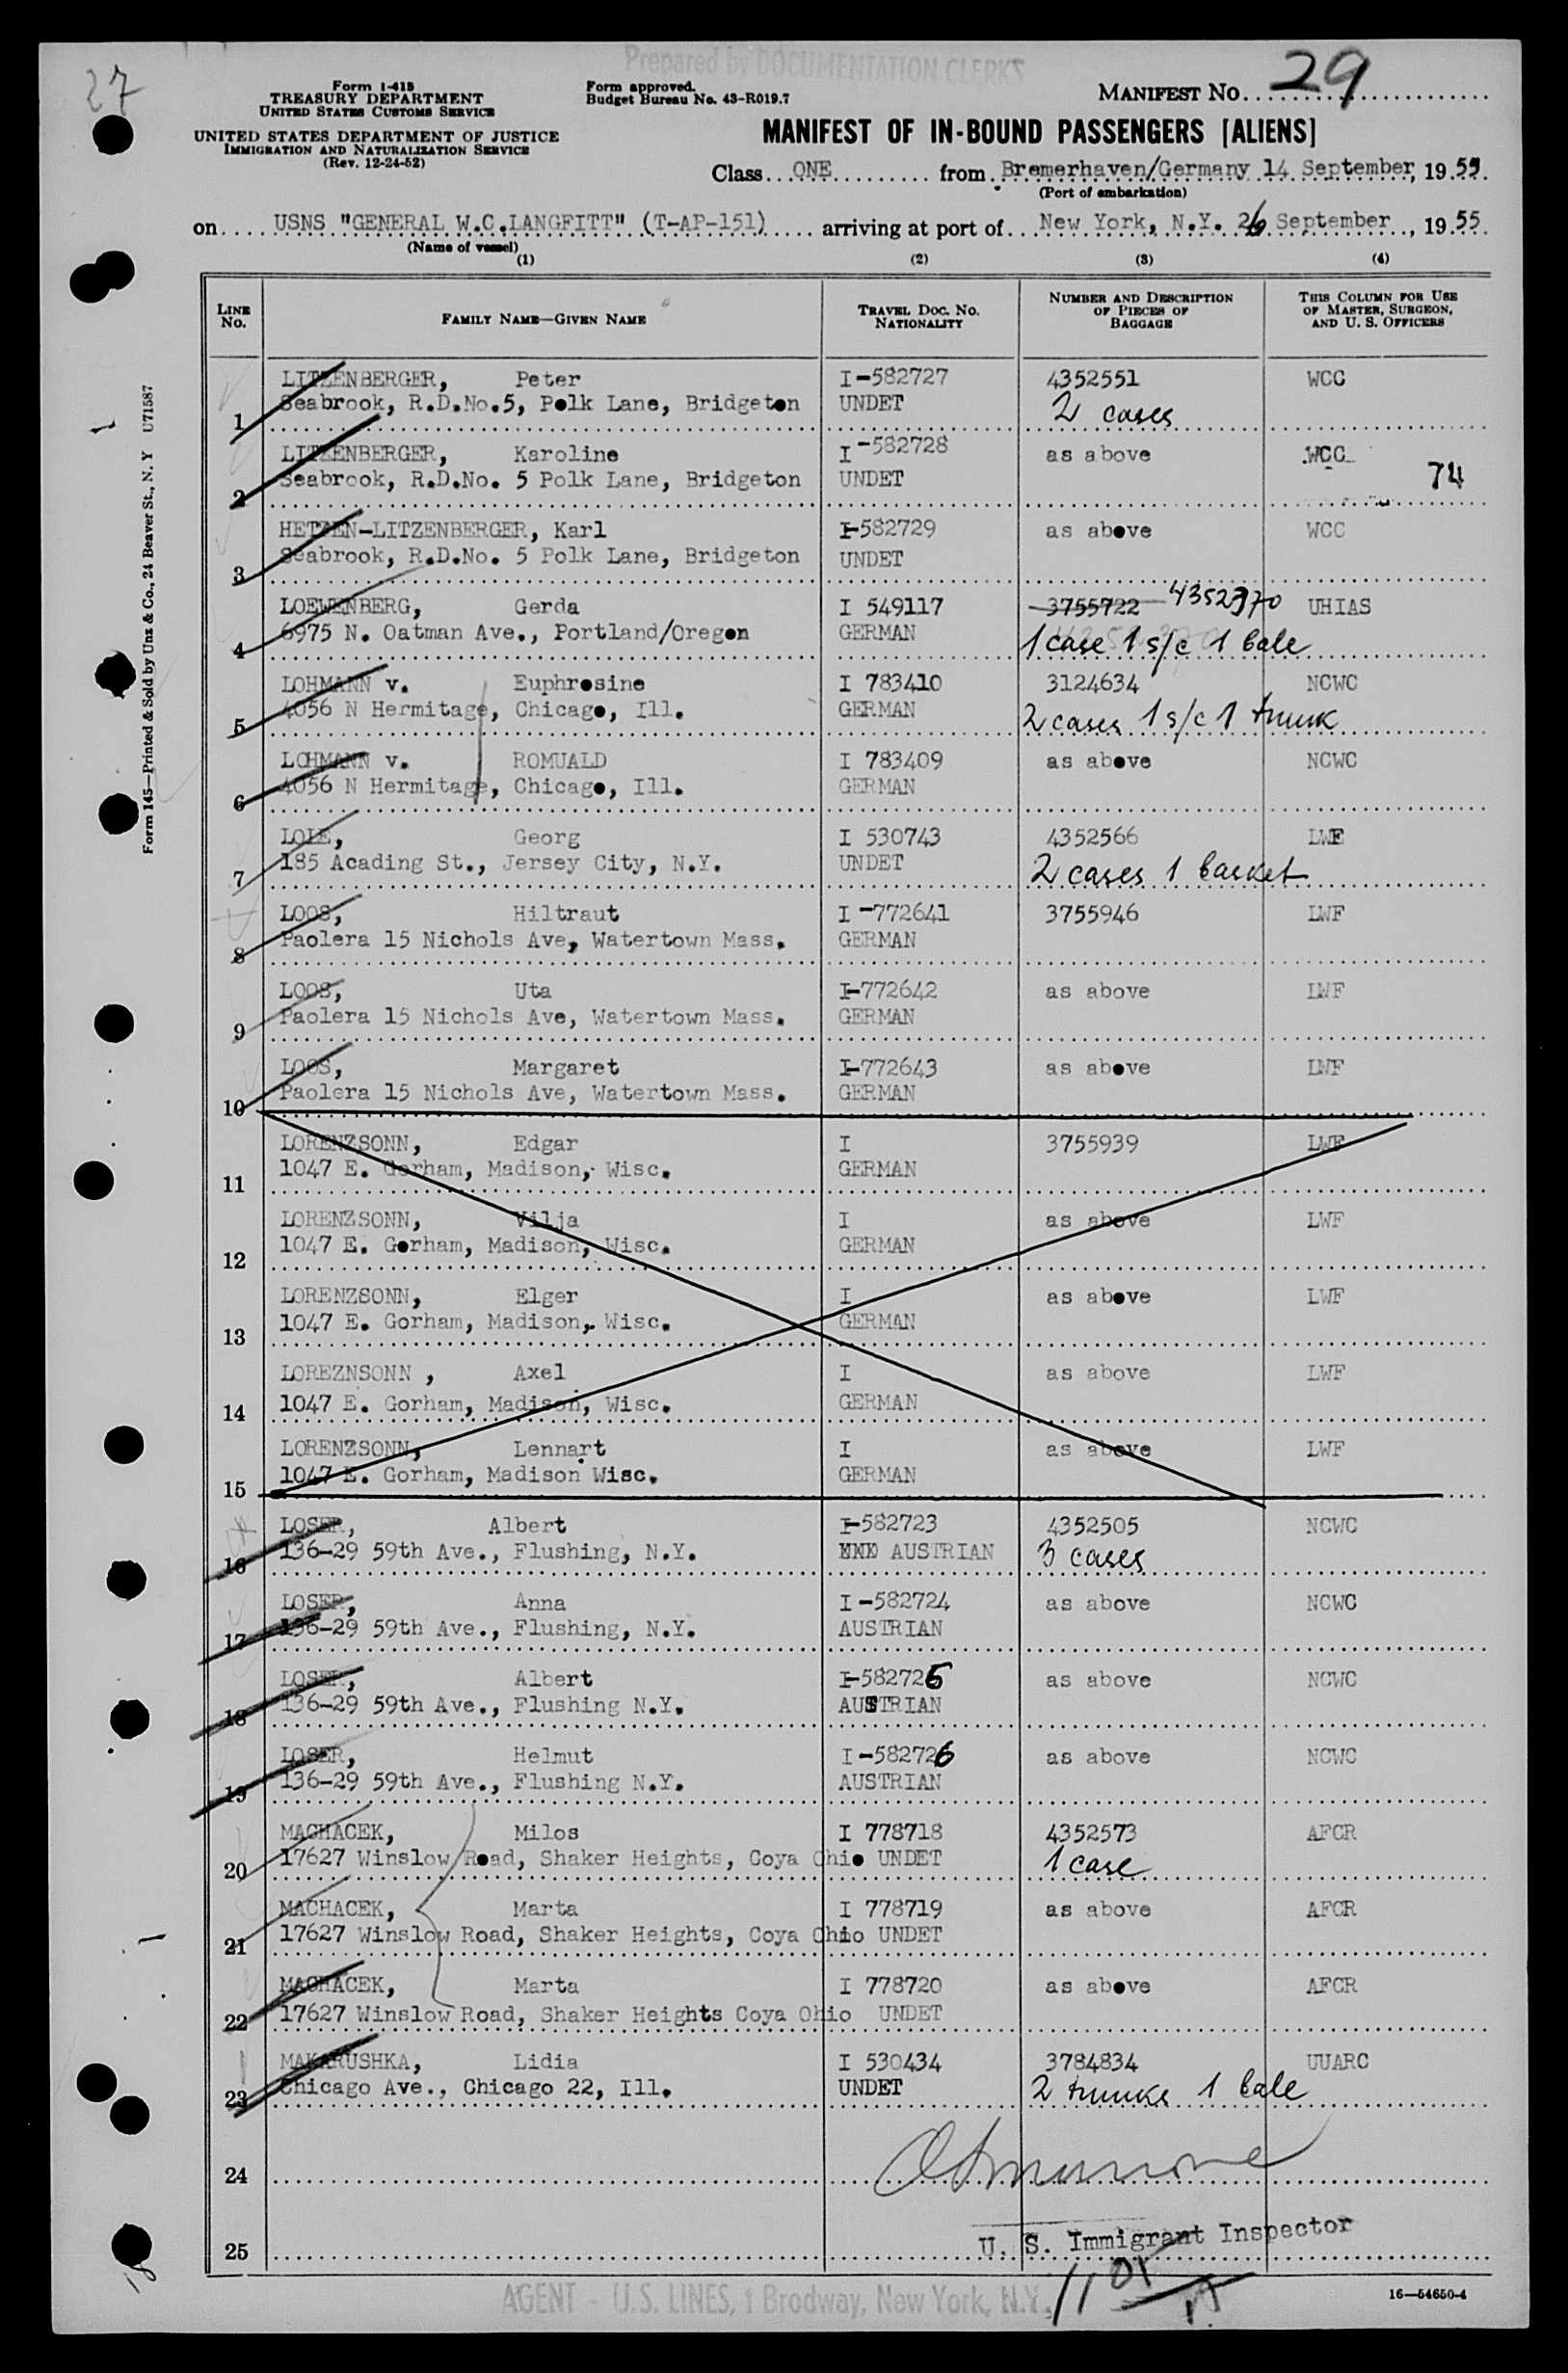 27
Prepared by DOCUMENTATION CLERKS
Form I-415
TREASURY DEPARTMENT
UNITED STATES CUSTOMS SERVICE
UNITED STATES DEPARTMENT OF JUSTICE
IMMIGRATION AND NATURALIZATION SERVICE
(Rev. 12-24-52)
Form approved.
Budget Bureau No. 43-R019.7
MANIFEST NO. 29
MANIFEST OF IN-BOUND PASSENGERS [ALIENS]
Class ONE from Bremerhaven/Germany 14 September, 1955
(Port of embarkation)
on USNS "GENERAL W.C.LANGFITT" (T-AP-151) arriving at port of New York, N.Y. 26 September, 1955
(Name of vessel)
(1) (2) (3) (4)
LINE No. FAMILY NAME—GIVEN NAME TRAVEL DOC. NO. NATIONALITY NUMBER AND DESCRIPTION OF PIECES OF BAGGAGE THIS COLUMN FOR USE OF MASTER, SURGEON, AND U. S. OFFICERS
Form 145—Printed & Sold by Unz & Co., 24 Beaver St., N. Y U71587
LITZENBERGER, Peter I-582727 4352551 WCC
1 Seabrook, R.D.No.5, Polk Lane, Bridgeton UNDET 2 cases
LITZENBERGER, Karoline I-582728 as above WCC
2 Seabrook, R.D.No. 5 Polk Lane, Bridgeton UNDET 74
HETZEN-LITZENBERGER, Karl I-582729 as above WCC
3 Seabrook, R.D.No. 5 Polk Lane, Bridgeton UNDET
LOEWENBERG, Gerda I 549117 3755722 4352370 UHIAS
4 6975 N. Oatman Ave., Portland/Oregon GERMAN 1 case 1 s/c 1 bale
LOHMANN v. Euphrosine I 783410 3124634 NCWC
5 4056 N Hermitage, Chicago, Ill. GERMAN 2 cases 1 s/c 1 trunk
LOHMANN v. ROMUALD I 783409 as above NCWC
6 4056 N Hermitage, Chicago, Ill. GERMAN
LOLE, Georg I 530743 4352566 LWF
7 185 Acading St., Jersey City, N.Y. UNDET 2 cases 1 basket
LOOS, Hiltraut I-772641 3755946 LWF
8 Paolera 15 Nichols Ave, Watertown Mass. GERMAN
LOOS, Uta I-772642 as above LWF
9 Paolera 15 Nichols Ave, Watertown Mass. GERMAN
LOOS, Margaret I-772643 as above LWF
10 Paolera 15 Nichols Ave, Watertown Mass. GERMAN
LORENZSONN, Edgar I 3755939 LWF
11 1047 E. Gorham, Madison, Wisc. GERMAN
LORENZSONN, Vilja I as above LWF
12 1047 E. Gorham, Madison, Wisc. GERMAN
LORENZSONN, Elger I as above LWF
13 1047 E. Gorham, Madison, Wisc. GERMAN
LOREZNSONN , Axel I as above LWF
14 1047 E. Gorham, Madison, Wisc. GERMAN
LORENZSONN, Lennart I as above LWF
15 1047 E. Gorham, Madison Wisc. GERMAN
LOSER, Albert I-582723 4352505 NCWC
16 136-29 59th Ave., Flushing, N.Y. AUSTRIAN 3 cases
LOSER, Anna I-582724 as above NCWC
17 136-29 59th Ave., Flushing, N.Y. AUSTRIAN
LOSER, Albert I-582725 as above NCWC
18 136-29 59th Ave., Flushing N.Y. AUSTRIAN
LOSER, Helmut I-582726 as above NCWC
19 136-29 59th Ave., Flushing N.Y. AUSTRIAN
MACHACEK, Milos I 778718 4352573 AFCR
20 17627 Winslow Road, Shaker Heights, Coya Ohio UNDET 1 case
MACHACEK, Marta I 778719 as above AFCR
21 17627 Winslow Road, Shaker Heights, Coya Ohio UNDET
MACHACEK, Marta I 778720 as above AFCR
22 17627 Winslow Road, Shaker Heights Coya Ohio UNDET
MAKARUSHKA, Lidia I 530434 3784834 UUARC
23 Chicago Ave., Chicago 22, Ill. UNDET 2 trunks 1 bale
24
25 U. S. Immigrant Inspector
AGENT - U.S. LINES, 1 Brodway, New York, N.Y.
16—54650-4